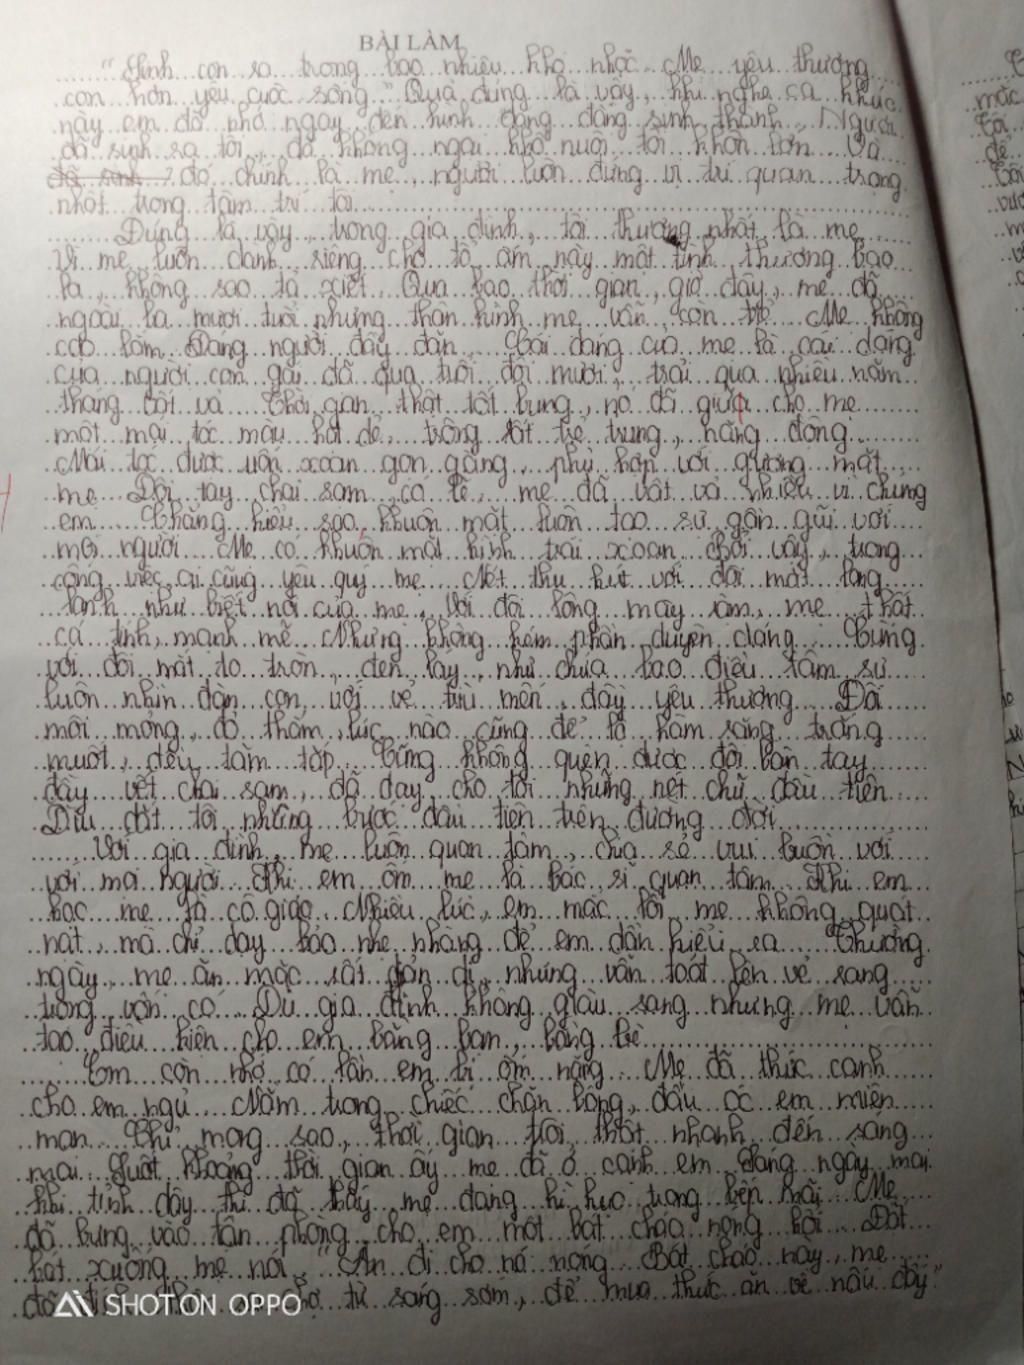 BÀI LÀM
"Sinh con ra trong bao nhiêu khó nhọc. Mẹ yêu thương
con hơn yêu cuộc sống" Quả đúng là vậy, khi nghe ca khúc
này em đã nhớ ngay đến hình dáng đấng sinh thành. Người
đã sinh ra tôi, đã không ngại khó nuôi tôi khôn lớn. Và
đó chính là mẹ, người luôn đứng vị trí quan trọng
nhất trong tâm trí tôi
Đúng là vậy, trong gia đình, tôi thương nhất là mẹ
Vì mẹ luôn dành riêng cho tổ ấm này một tình thương bao
la, không sao tả xiết. Qua bao thời gian, giờ đây, mẹ đã
ngoài ba mươi tuổi nhưng thân hình mẹ vẫn còn trẻ. Mẹ không
cao lắm. Dáng người đầy đặn. Cái dáng của mẹ là cái dáng
của người con gái đã qua tuổi đôi mươi, trải qua nhiều năm
tháng vất vả. Thời gian thật tốt bụng, nó đã giữ cho mẹ
một mái tóc màu hạt dẻ, trông rất trẻ trung, năng động
Mái tóc được uốn xoăn gọn gàng, phù hợp với gương mặt
mẹ. Đôi tay chai sạm, có lẽ, mẹ đã vất vả nhiều vì chúng
em. Chẳng hiểu sao, khuôn mặt luôn tạo sự gần gũi với
mọi người. Mẹ có khuôn mặt hình trái xoan. Bởi vậy, trong
công việc ai cũng yêu quý mẹ. Nét thu hút với đôi mắt long
lanh như biết nói của mẹ. Với đôi lông mày rậm, mẹ thật
cá tính, mạnh mẽ. Nhưng không kém phần duyên dáng. Cùng
với đôi mắt to tròn, đen láy, như chứa bao điều tâm sự
luôn nhìn đàn con với vẻ trìu mến, đầy yêu thương. Đôi
môi mỏng, đỏ thắm, lúc nào cũng để lộ hàm răng trắng
muốt, đều tăm tắp. Cũng không quên được đôi bàn tay
đầy vết chai sạm, đã dạy cho tôi những nét chữ đầu tiên
Dìu dắt tôi những bước đầu tiên trên đường đời
Với gia đình, mẹ luôn quan tâm, chia sẻ vui buồn với
với mọi người. Khi em ốm mẹ là bác sĩ quan tâm. Khi em
học mẹ là cô giáo. Nhiều lúc, em mắc lỗi mẹ không quát
nạt, mà chỉ dạy bảo nhẹ nhàng để em dần hiểu ra. Thường
ngày, mẹ ăn mặc rất giản dị, nhưng vẫn toát lên vẻ sang
trọng vốn có. Dù gia đình không giàu sang nhưng mẹ vẫn
tạo điều kiện cho em bằng bạn, bằng bè
Em còn nhớ có lần em bị ốm nặng. Mẹ đã thức canh
cho em ngủ. Nằm trong chiếc chăn bông, đầu óc em miên
man. Chỉ mong sao, thời gian trôi thật nhanh đến sáng
mai. Suốt khoảng thời gian ấy mẹ đã ở cạnh em. Sáng ngày mai
khi tỉnh dậy thì đã thấy mẹ đang hì hục trong bếp rồi. Mẹ
đã bưng vào tận phòng cho em một bát cháo nóng hổi. Đặt
bát xuống mẹ nói, "Ăn đi cho nó nóng. Bát cháo này, mẹ
đã chợ từ sáng sớm, để mua thức ăn về nấu đấy"
SHOT ON OPPO